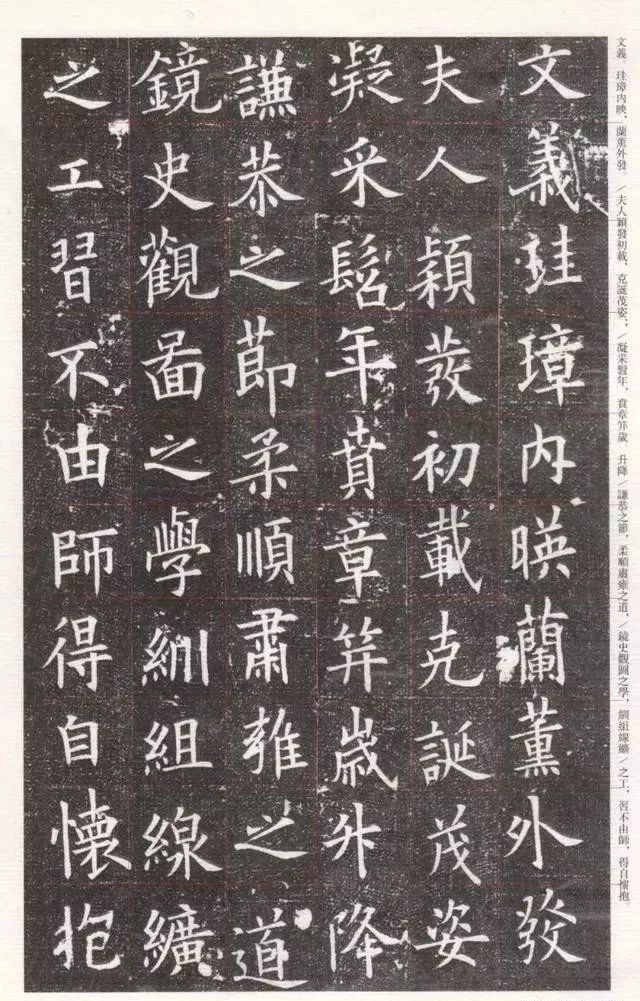 文義珪璋内暎蘭薰外發
夫人穎發初載克誕茂姿
凝采髫年賁章笄歲升降
謙恭之節柔順肅雍之道
鏡史觀圖之學紃組線纊
之工習不由師得自懷抱
文義。珪璋內映、蘭薰外發。/夫人穎發初載、克誕茂姿；/凝采髫年，賁章笄歲。升降/謙恭之節，柔順肅雍之道，/鏡史觀圖之學，紃組線纊/之工，習不由師，得自懷抱。